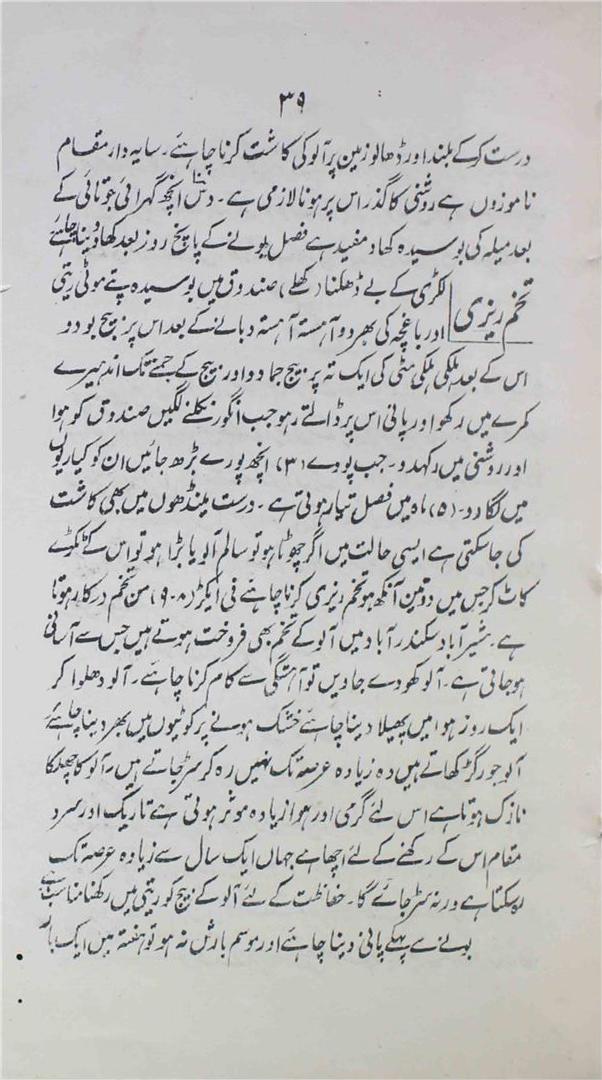 ۳۹
درست کر کے بلند اور ڈھالو زمین پر آلو کی کاشت کرنا چاہئے۔ سایہ دار مقام
ناموزوں ہے روشنی کا گذر اس پر ہونا لازمی ہے۔ دس انچھ گہرائی جوتائی کے
بعد میلہ کی بوسیدہ کھاد مفید ہے فصل بونے کے پانچ روز بعد کھاد دینا چاہئے
تخم ریزی لکڑی کے بے ڈھکنا (کھلے) صندوق میں بوسیدہ پتے موٹی ریتی
اور باغیچہ کی بھر دو آہستہ آہستہ دبانے کے بعد اس پر بیج بو دو
اس کے بعد ہلکی ہلکی مٹی کی ایک تہ پر بیج جما دو اور بیج کے جمنے تک اندہیرے
کمرے میں رکھو اور پانی اس پر ڈالتے رہو جب انگور نکلنے لگیں صندوق کو ہوا
اور روشنی میں رکہدو۔ جب پودے (۳) انچھ پورے بڑھ جائیں ان کو کیاریوں
میں لگا دو۔ (۵) ماہ میں فصل تیار ہوتی ہے۔ درست مینڈھوں میں بھی کاشت
کی جا سکتی ہے ایسی حالت میں اگر چھوٹا ہو تو سالم آلو یا بڑا ہو تو اس کے ٹکڑے
کاٹ کر جس میں دو تین آنکھ ہو تخم ریزی کرنا چاہئے فی ایکڑ (۸-۹) من تخم درکار ہوتا
ہے۔ بشیرآباد سکندرآباد میں آلو کے تخم بھی فروخت ہوتے ہیں جس سے آسانی
ہو جاتی ہے۔ آلو کھودے جاویں تو آہستگی سے کام کرنا چاہئے۔ آلو دھلوا کر
ایک روز ہوا میں پھیلا دینا چاہئے خشک ہونے پر کوٹیوں میں بھر دینا چاہئے
آلو جو رگڑ کھاتے ہیں وہ زیادہ عرصہ تک نہیں رہ کر سڑ جاتے ہیں۔ آلو کا چھلکا
نازک ہوتا ہے اس لئے گرمی اور ہوا زیادہ موثر ہوتی ہے تاریک اور سرد
مقام اس کے رکھنے کے لئے اچھا ہے جہاں ایک سال سے زیادہ عرصہ تک
رہ سکتا ہے ورنہ سڑ جائے گا۔ حفاظت کے لئے آلو کے بیج کو ریتی میں رکھنا مناسب ہے
بونے سے پہلے پانی دینا چاہئے اور موسم بارش نہ ہو تو ہفتہ میں ایک بار